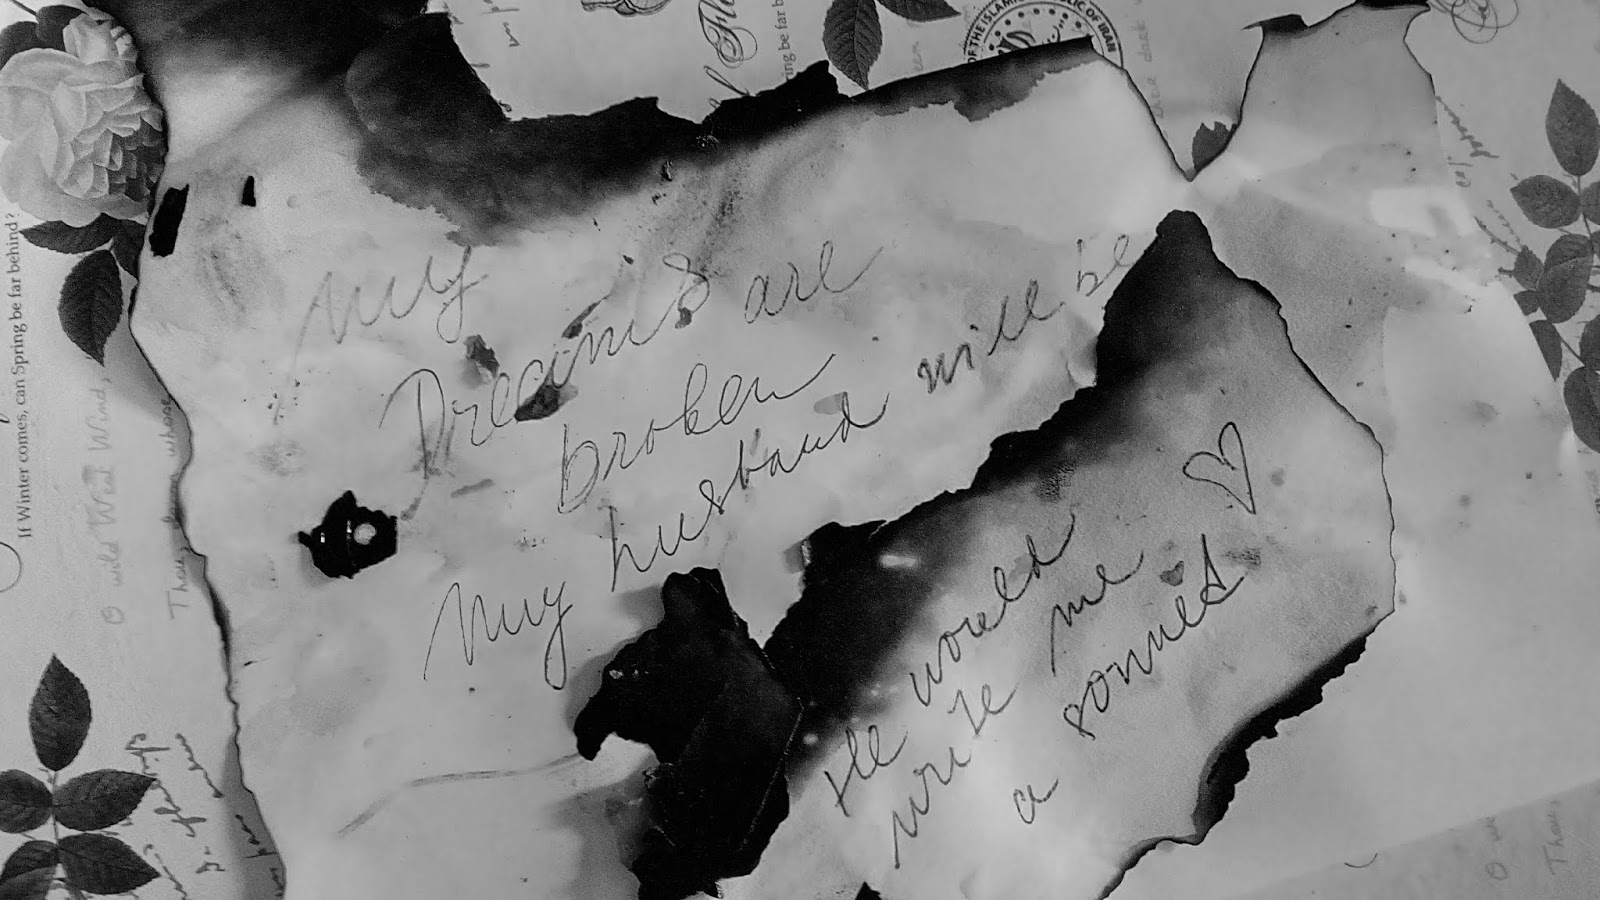 My
Dreams are
broken
My husband will be
He would
write me
a sonnet
If Winter comes, can Spring be far behind?
O wild West Wind,
Thou, from whose
ring be far b
OF THE ISLAMIC
LIC OF IRAN
O we
Thou